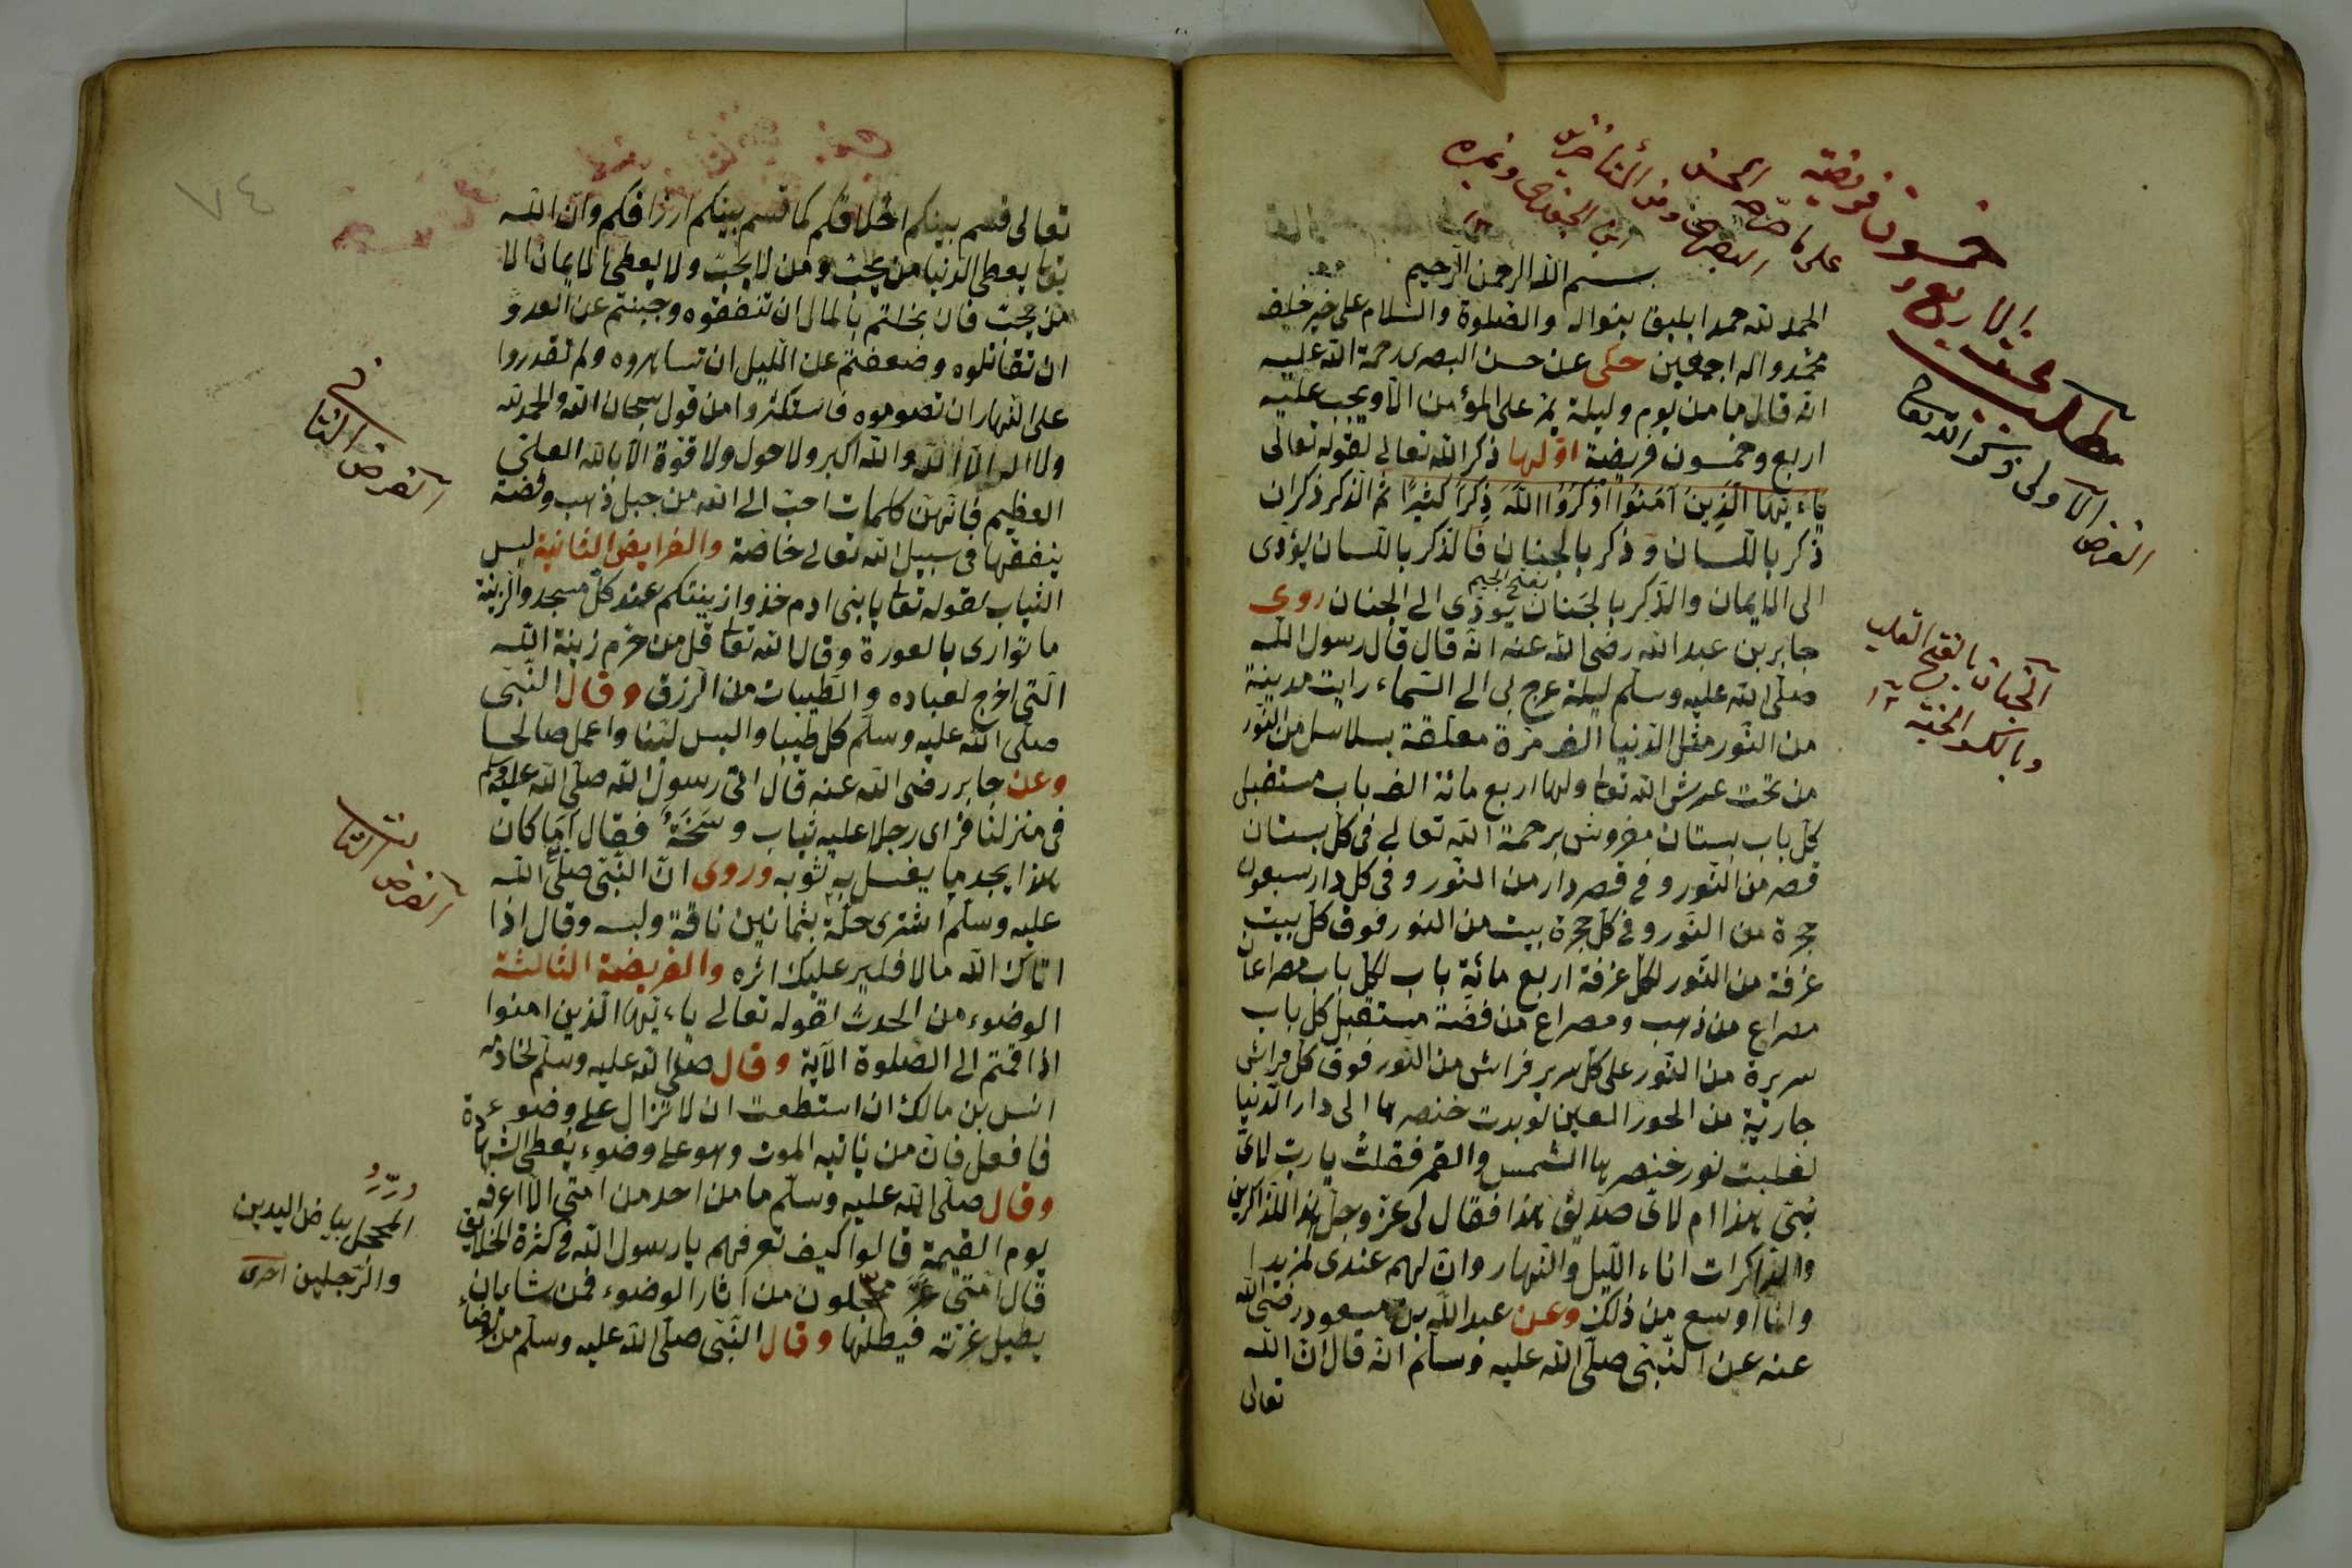 بسم الله الرحمن الرحيم
الحمد لله حمدا يليق بنواله والصلوة والسلام على خير خلقه
محمد واله اجمعين حكى عن حسن البصرى رحمة الله عليه
انه قال ما من يوم وليلة يمر على المؤمن الا ويجب عليه
اربع وخمسون فريضة اولها ذكر الله تعالى لقوله تعالى
ياءيها الذين آمنوا اذكروا الله ذكرا كثيرا ثم الذكر ذكران
ذكر باللسان وذكر بالجنان فالذكر باللسان يؤدى
بفتح الجيم
الى الايمان والذكر بالجنان يؤدى الى الجنان روى
جابر بن عبد الله رضى الله عنه انه قال قال رسول الله
صلى الله عليه وسلم ليلة عرج بى الى السماء رايت مدينة
من النور مثل الدنيا الف مرة معلقة بسلاسل من النور
من تحت عرش الله تعا ولها اربع مائة الف باب مستقبل
كل باب بستان مفروش برحمة الله تعالى فى كل بستان
قصر من النور وفى قصر دار من النور وفى كل دار سبعون
حجرة من النور وفى كل حجرة بيت من النور فوق كل بيت
غرفة من النور لكل غرفة اربع مائة باب لكل باب مصراعان
مصراع من ذهب ومصراع من فضة مستقبل كل باب
سريرة من النور على كل سرير فراش من النور فوق كل فراش
جارية من الحور العين لو بدت خنصرها الى دار الدنيا
لغلبت نور خنصرها الشمس والقمر فقلت يا رب لاى
نبى هذا ام لاى صديق هذا فقال لى عز وجل هذا للذاكرين
والذاكرات اناء الليل والنهار وان لهم عندى لمزيدا
وانا اوسع من ذلك وعن عبد الله بن مسعود رضى الله
عنه عن النبى صلى الله عليه وسلم انه قال ان الله
تعالى
خمسون فريضة
على ما صرحه الحسن
البصرى ومن المتأخرين
ابن الجوزى وغيره
الاربع و
مطلب بحث
الفرض الاولى ذكر الله تعا
الجنان بالفتح القلب
وبالكسر الجنة
تعالى قسم بينكم اخلاقكم كما قسم بينكم ارزاقكم وان الله
تعا يعطى الدنيا من يحب ومن لا يحب ولا يعطى الايمان الا
من يحب فان بخلتم بالمال ان تنفقوه وجبنتم عن العدو
ان تقاتلوه وضعفتم عن الليل ان تساهروه ولم تقدروا
على النهار ان تصوموه فاستكثروا من قول سبحان الله والحمد لله
ولا اله الا الله والله اكبر ولا حول ولا قوة الا بالله العلى
العظيم فانهن كلمات احب الى الله من جبل ذهب وفضة
ينفقها فى سبيل الله تعالى خاصة والفرايض الثانية لبس
الثياب لقوله تعا يا بنى ادم خذوا زينتكم عند كل مسجد والزينة
ما توارى بالعورة وقال الله تعا قل من حرم زينة الله
التى اخرج لعباده والطيبات من الرزق وقال النبى
صلى الله عليه وسلم كل طيبا والبس لينا واعمل صالحا
وعن جابر رضى الله عنه قال اتى رسول الله صلى الله عليه وسلم
فى منزلنا فراى رجلا عليه ثياب وسخة فقال اما كان
هذا يجد ما يغسل به ثوبه وروى ان النبى صلى الله
عليه وسلم اشترى حلة بثمانين ناقة ولبسه وقال اذا
اتاك الله مالا فلير عليك اثره والفريضة الثالثة
الوضوء من الحدث لقوله تعالى ياءيها الذين امنوا
اذا قمتم الى الصلوة الآية وقال صلى الله عليه وسلم لخادمه
انس بن مالك ان استطعت ان لا تزال على وضوء
فافعل فان من ياتيه الموت وهو على وضوء يعطى الشهادة
وقال صلى الله عليه وسلم ما من احد من امتى الا اعرفه
يوم القيمة قالوا كيف تعرفهم يا رسول الله فى كثرة الخلايق
قال امتى غر محجلون من اثار الوضوء فمن شاء ان
يطيل غرته فيطلها وقال النبى صلى الله عليه وسلم من توضاء
الفرض الثانى
الفرض الثالث
المحجل بياض اليدين
والرجلين
٧٤